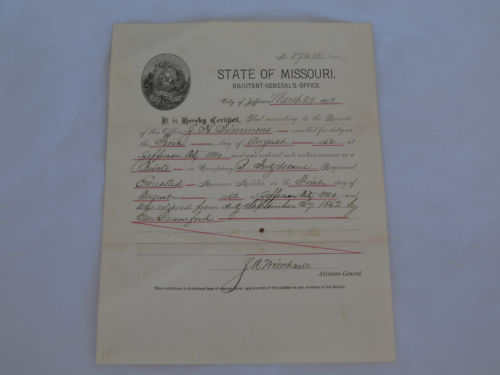 No 17250
STATE OF MISSOURI.
ADJUTANT-GENERAL'S OFFICE.
City of Jefferson, March 29
It is Hereby Certified, That according to the Records
of this Office J. H. Simmons enrolled for duty on
the First day of August 1862 at
Jefferson City Mo and was ordered into active service as a
Private in Company Regiment
Enrolled Missouri Militia, on the First day of
August 1862 at Jefferson City, Mo and
was relieved from duty September 27, 1862 by
Adjutant-General.
This certificate is furnished free of charge upon application of the soldier or any member of his family.